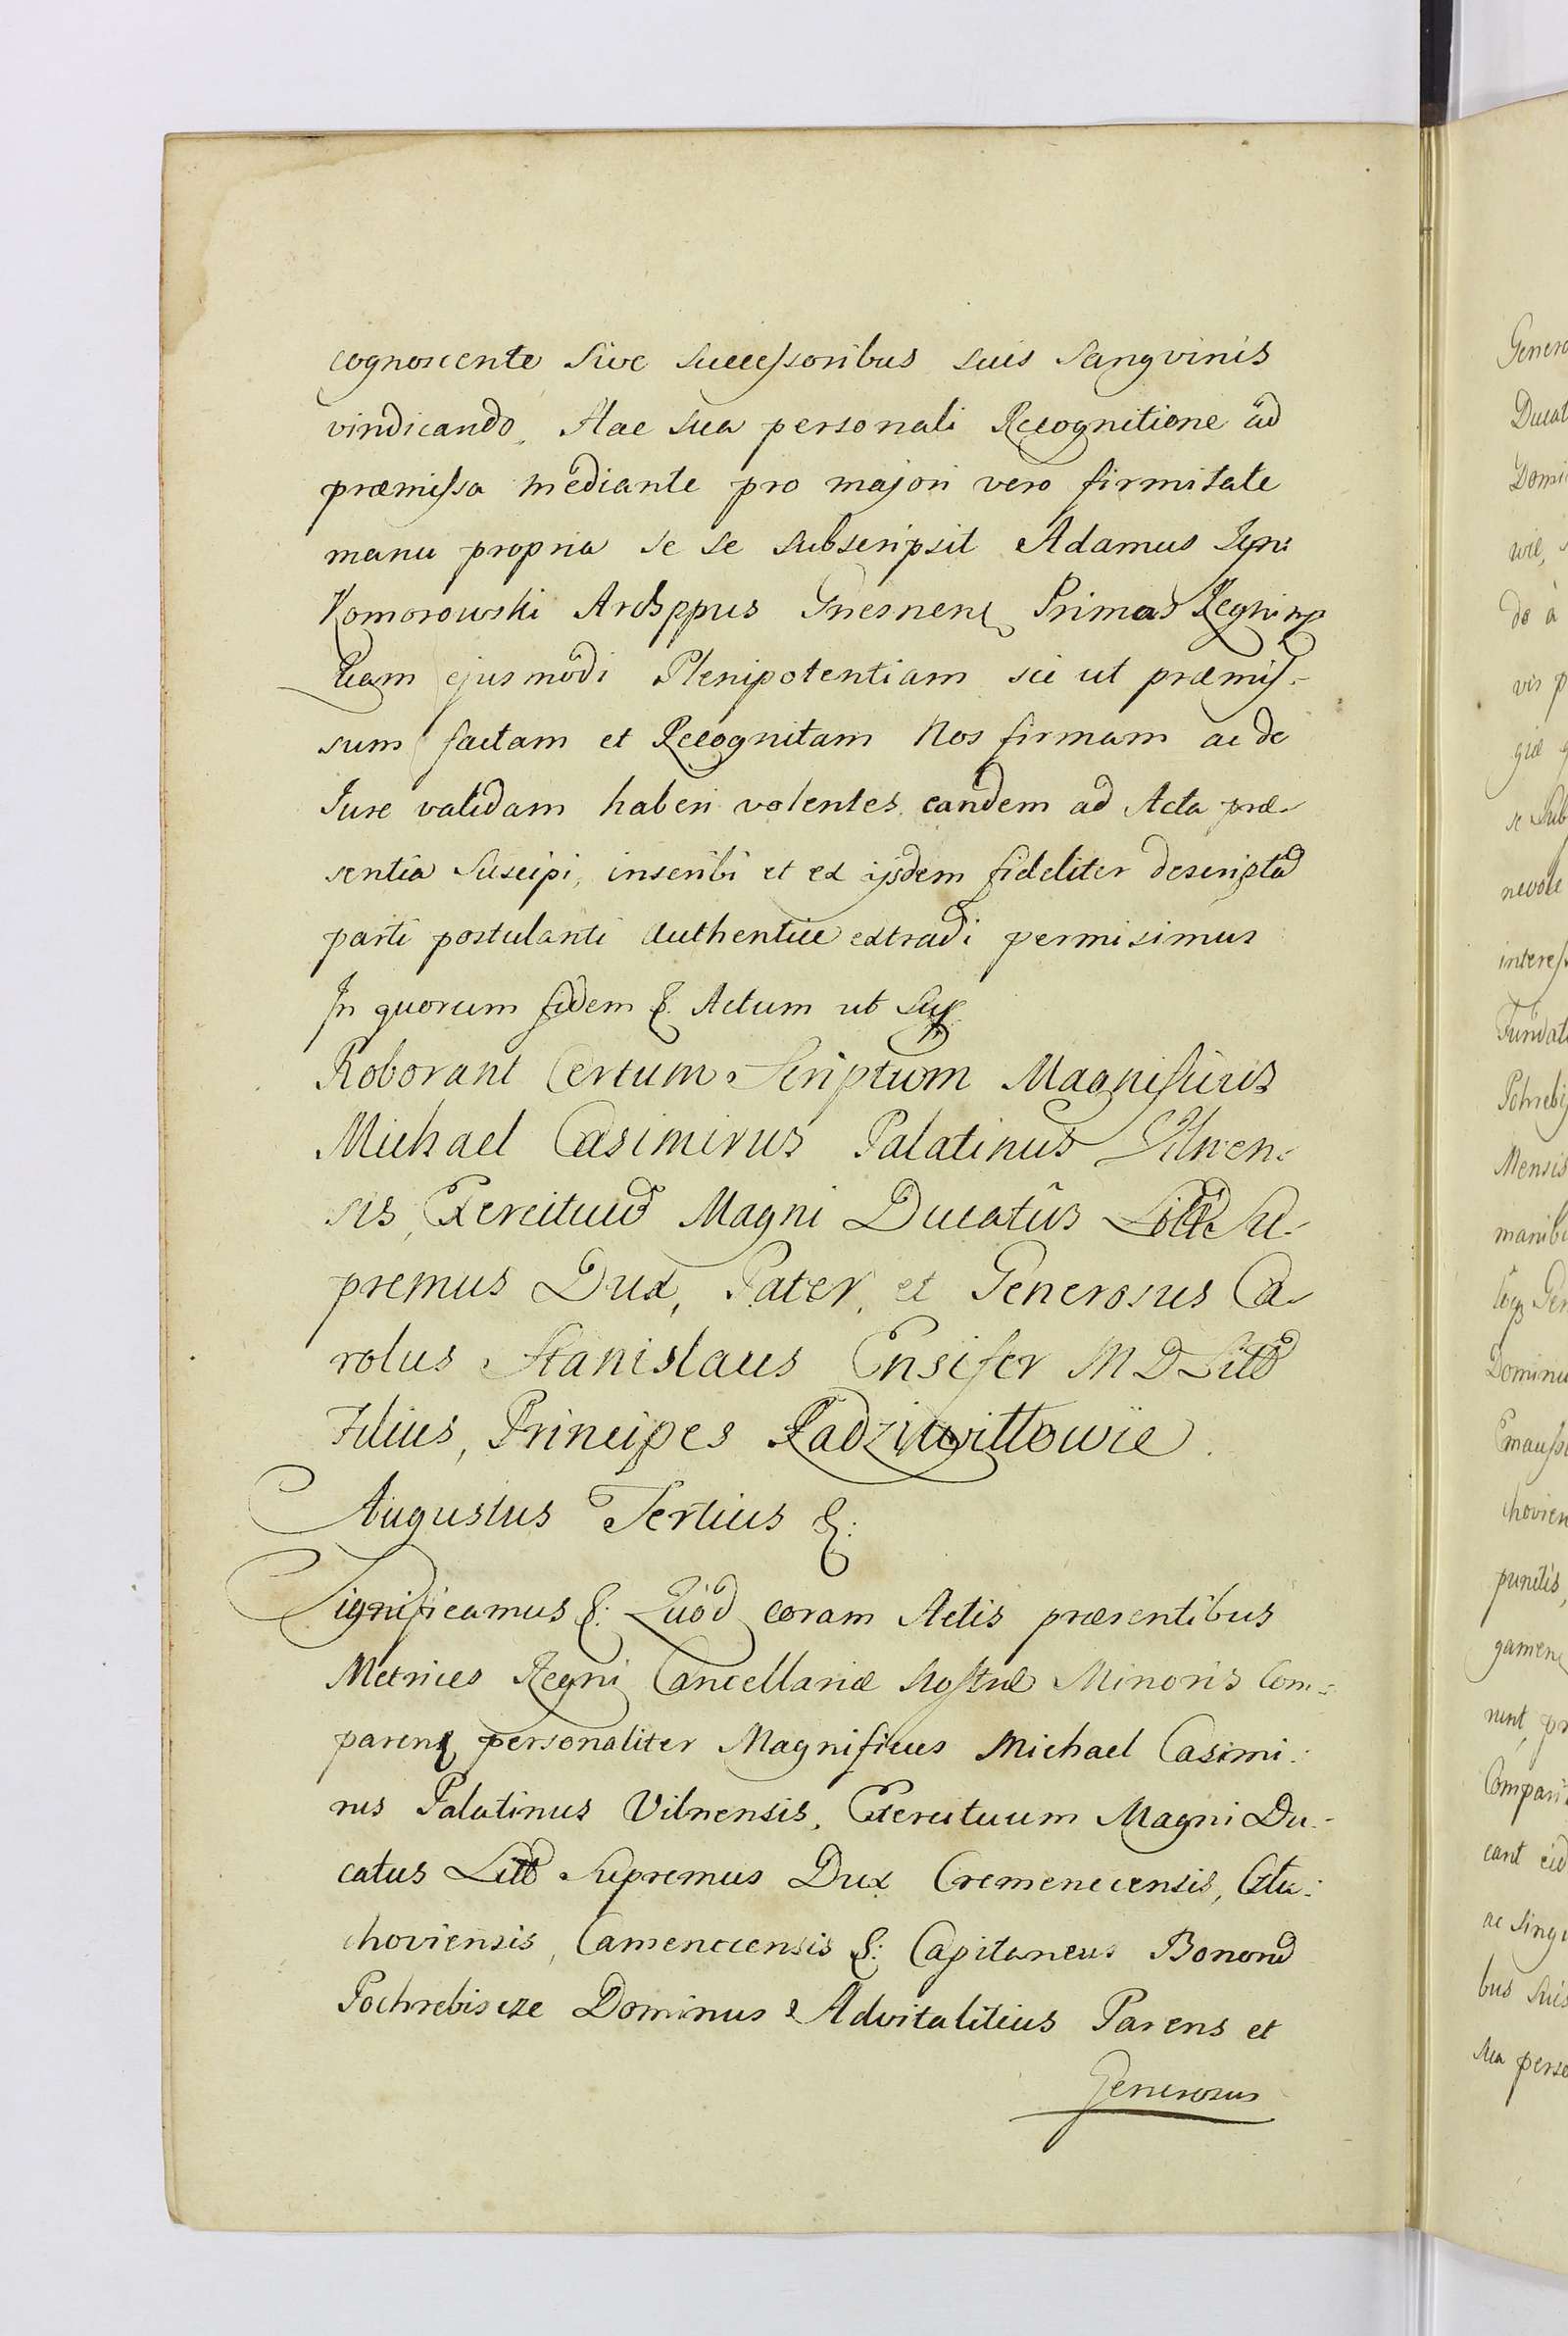 cognoscente sive successoribus suis sangvinis
vindicando. Hac sua personali Recognitione ad
præmissa mediante pro majori vero firmitate
manu propria se se subscripsit Adamus Ign:
Komorowski Archppus Gnesnens Primas Regni mp
Quam ejusmodi Plenipotentiam sic ut præmis-
sum factam et Recognitam Nos firmam ac de
Jure validam haberi volentes eandem ad Acta præ-
sentia suscipi, inscribi et ex ijsdem fideliter descriptã
parti postulanti authentice extradi permisimus
In quorum fidem &. Actum ut sup.
Roborant Certum Scriptum Magnificus
Michael Casimirus Palatinus Vilnen-
sis, Exercituũ Magni Ducatûs Litt Su-
premus Dux, Pater, et Generosus Ca-
rolus Stanislaus Ensifer M D Litt
Filius, Principes Radziwiłłowie.
Augustus Tertius &:
Significamus &. Quod coram Actis præsentibus
Metrices Regni Cancellariæ Nostræ Minoris Com-
parens personaliter Magnificus Michael Casimi-
rus Palatinus Vilnensis, Exercituum Magni Du-
catus Litt Supremus Dux Cremenecensis, Czlu-
choviensis, Camenecensis &: Capitaneus Bonorũ
Pochrebiscze Dominus Advitalitius Parens et
Generosus
Ducat
do à
vis p
giæ
nevole
Mensis
punitis,
nunt, pr
cant eid
ac singu
bus suis
sua perso